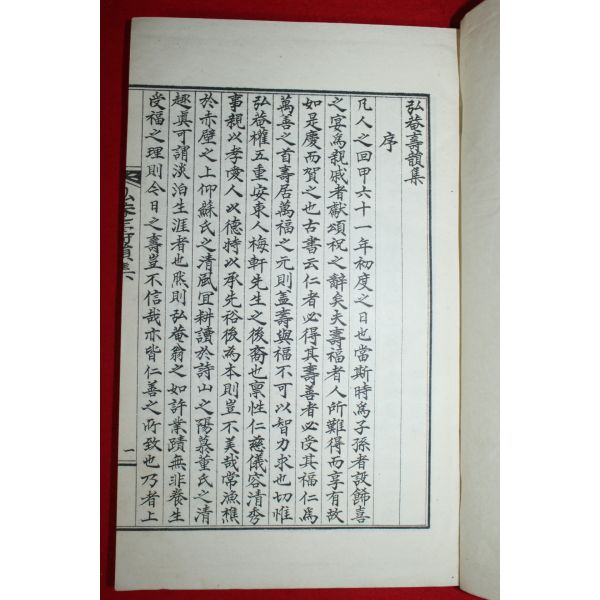 弘菴壽韻集
序
凡人之回甲六十一年初度之日也當斯時爲子孫者設飾喜
之宴爲親戚者獻頌祝之辭矣夫壽福者人所難得而享有故
如是慶而賀之也古書云仁者必得其壽善者必受其福仁爲
萬善之首壽居萬福之元則盖壽與福不可以智力求也切惟
弘菴權五重安東人梅軒先生之後裔也禀性仁慈儀容清秀
事親以孝愛人以德特以承先裕後為本則豈不美哉常漁樵
於赤壁之上仰蘇氏之清風宜耕讀於詩山之陽慕董氏之清
趣眞可謂淡泊生涯者也然則弘菴翁之如許業蹟無非養生
受福之理則今日之壽豈不信哉亦皆仁善之所致也乃者上
弘菴壽韻集
一